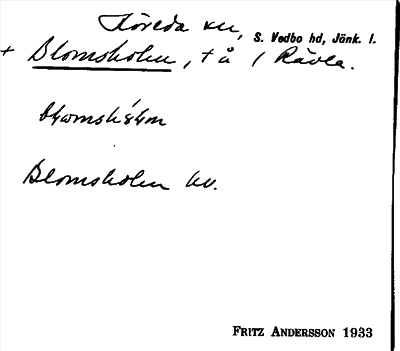 Höreda sn, S. Vedbo hd, Jönk. l.
+ Blomsholm, t å / Rävla.
Blomsholm kv.
FRITZ ANDERSSON 1933